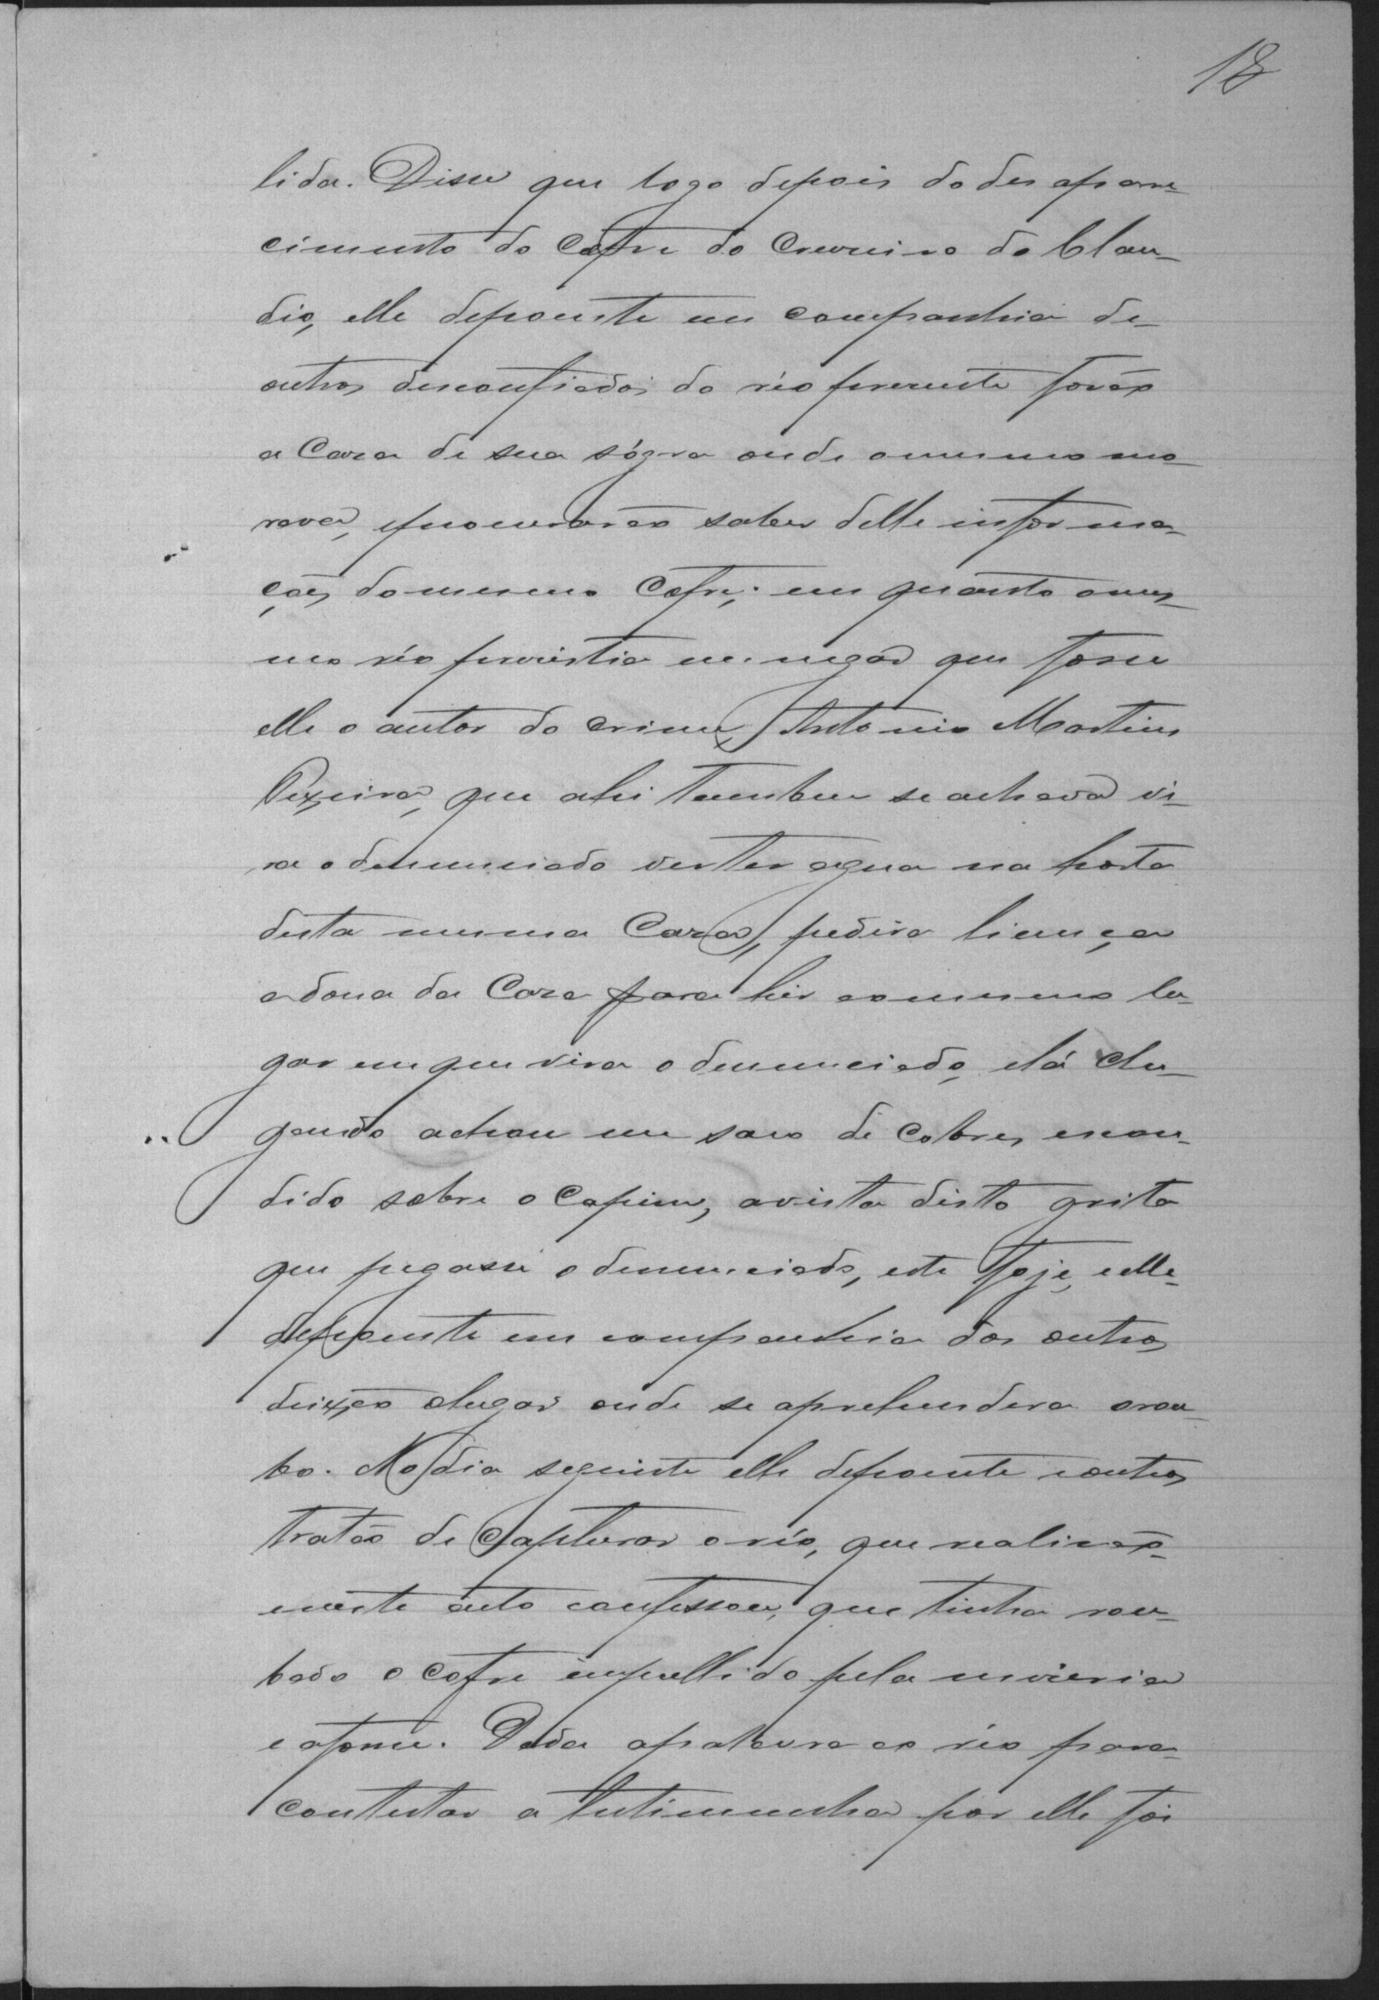 18
lida. Disse que logo depois do desappare-
cimento do Cofre do Cruzeiro do Clau-
dio, elle depoente em companhia de
outros desconfiados do réo presente forão
a Caza de sua sógra onde o mesmo mo-
rava, e procurarão saber delle informa-
ções do mesmo Cofre; em quanto o mes-
mo réo persistia em negar que fosse
elle o autor do crime, Antonio Martins
Pexeira, que ahi tambem se achava vi-
ra o denunciado verter agua na horta
desta mesma Caza, pedira licença
a dona da Caza para hir ao mesmo lu-
gar em que vira o denunciado, e lá che-
gando achou um saco de Cobres escon-
dido sobre o Capim, a vista disto grita
que pegasse o denunciado, este foje, e elle
depoente em companhia dos outros
deixão o lugar onde se aprehendera o rou-
bo. No dia seguinte elle depoente e outros
tratão de Capturar o réo, que realizão
e neste auto confessou, que tinha rou-
bado o Cofre impellido pela mizeria
e a fome. Dada a palavra ao réo para
contestar a testimunha por elle foi